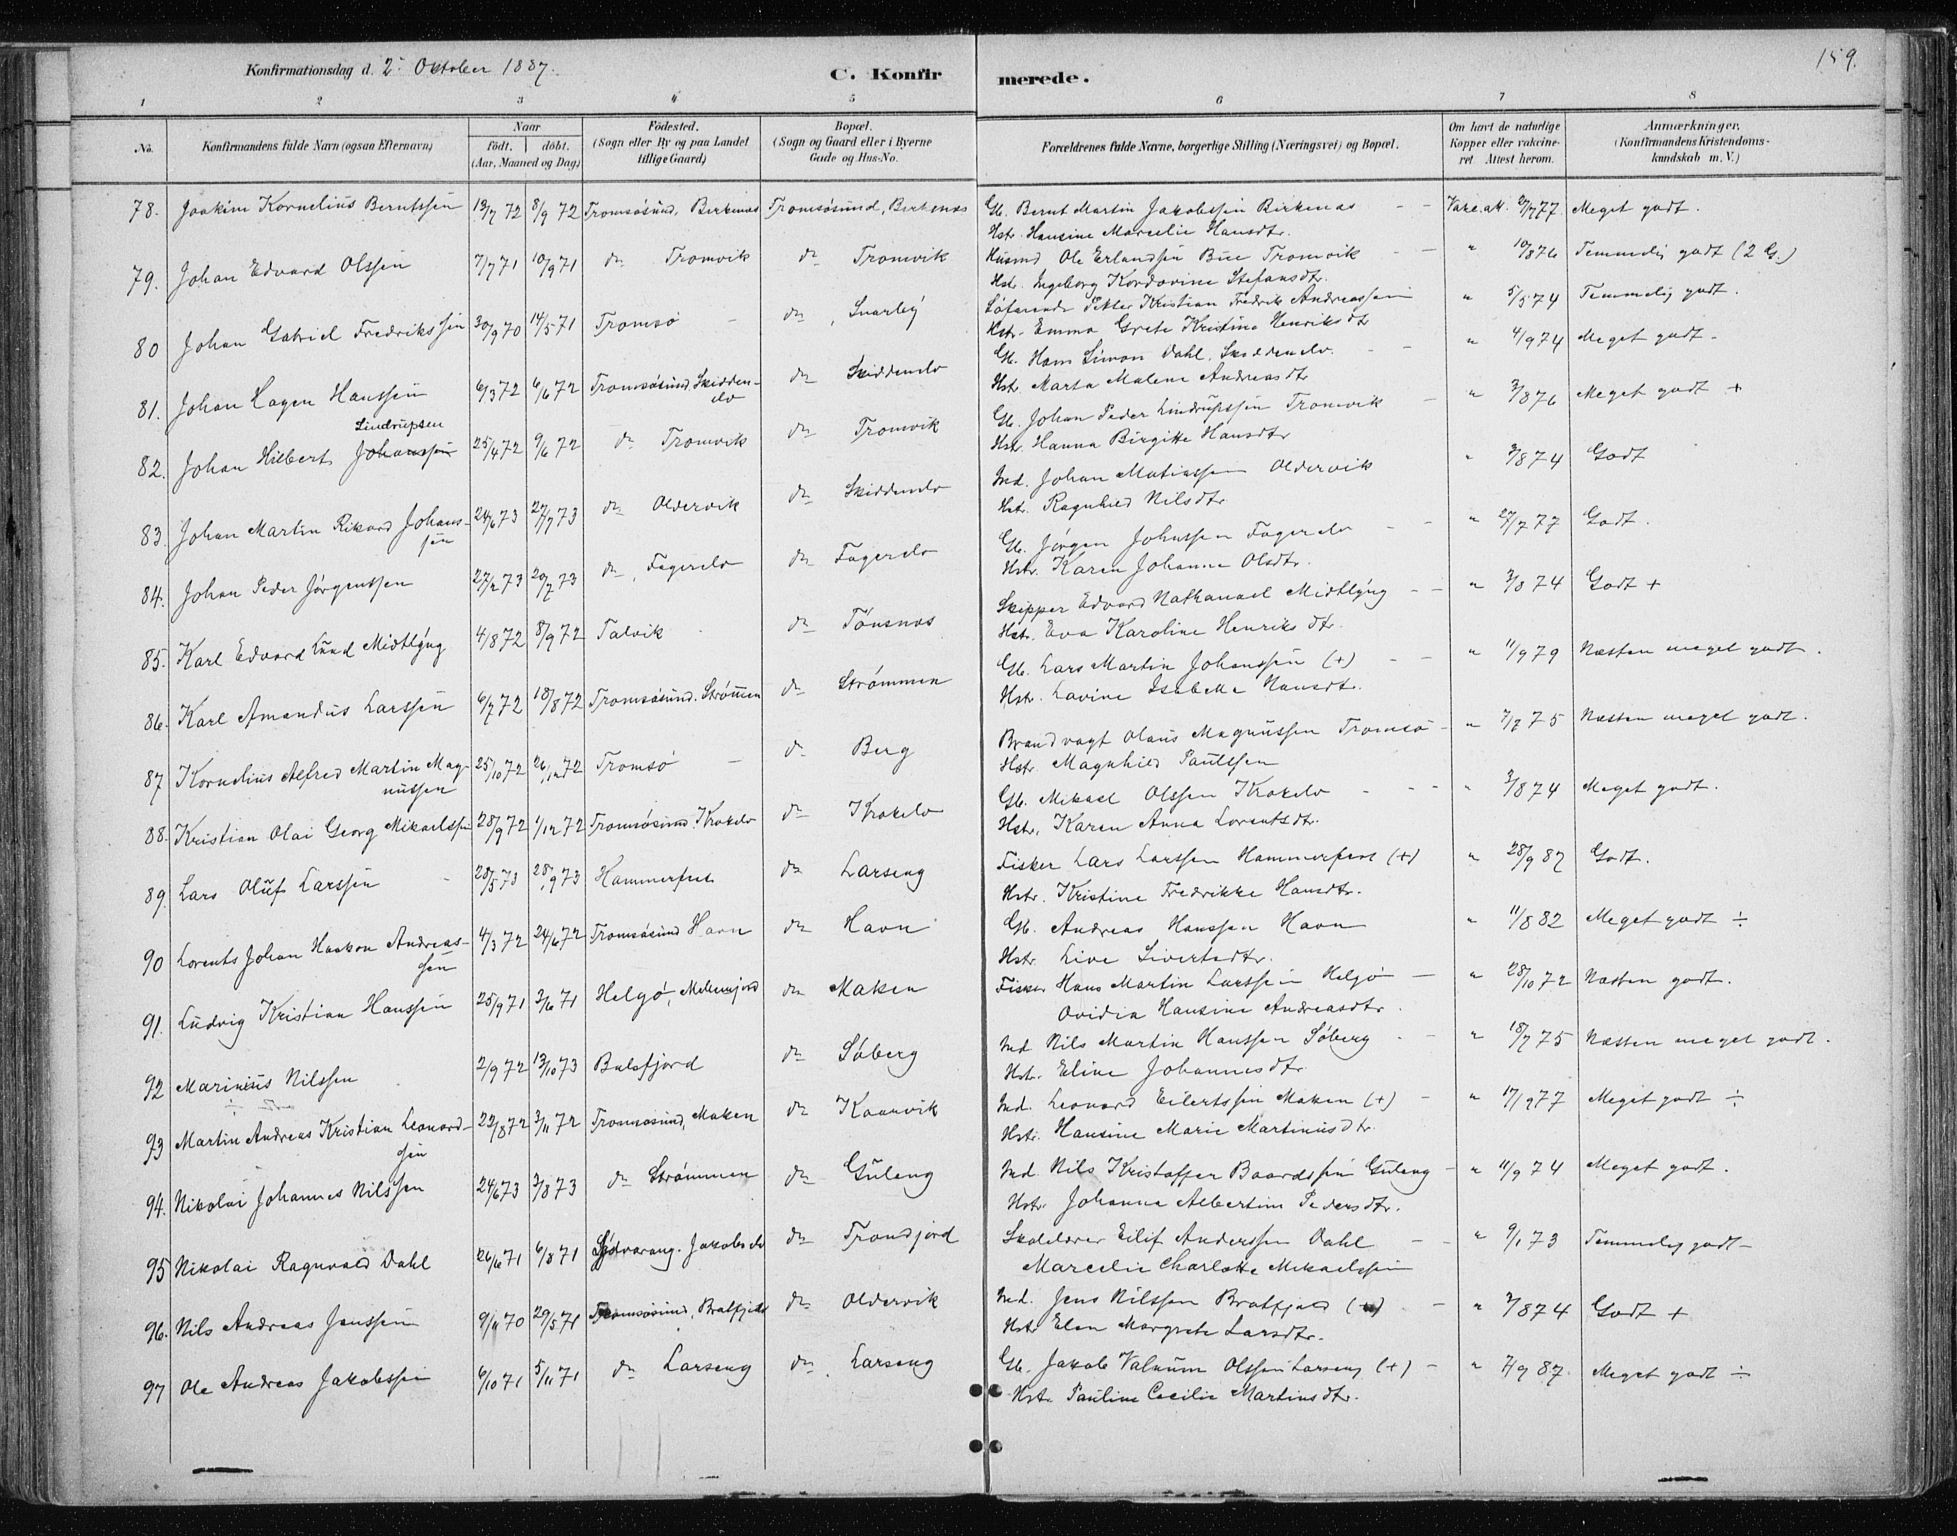 Konfirmationsdag d. 2. Oktober 1887.
C. Konfirmerede.
159.
1 2 3 4 5 6 7 8
No.
Konfirmandens fulde Navn (ogsaa Efternavn)
Naar födt. döbt. (Aar, Maaned og Dag)
Födested. (Sogn eller By og paa Landet tillige Gaard)
Bopæl. (Sogn og Gaard eller i Byerne Gade og Hus-No.
Forældrenes fulde Navne, borgerlige Stilling (Næringsvei) og Bopæl.
Om havt de naturlige Kopper eller vakcineret Attest herom.
Anmærkninger. (Konfirmandens Kristendomskundskab m. V.)
78. Joakim Kornelius Berntssen 13/7 72 8/9 72 Tromsøsund, Birkenæs Tromsøsund, Birkenæs Gb. Bernt Martin Jakobssen Birkenæs Vakc. att. 77 Meget godt.
Hstr. Hansine Marcelie Hansdtr.
79. Johan Edvard Olssen 7/7 71 10/9 71 do Tromvik do Tromvik Husmd Ole Erlandsen Bue Tromvik " 10/8 76 Temmelig godt (2 G.)
Hstr. Ingeborg Kordovine Stefansdtr.
80 Johan Gabriel Fredrikssen 30/9 70 14/5 71 Tromsø do Snarby Søfarende Peter Kristian Fredrik Andreassen " 5/5 74 Temmelig godt.
Hstr. Emma Grete Kristina Henriksdtr
81. Johan Hagen Hanssen 6/3 72 6/6 72 Tromsøsund, Skiddenelv do Skiddenelv Gb. Hans Simon Dahl, Skiddenelv. " 4/9 74 Meget godt.
Hstr Marta Malene Andreasdtr
82. Johan Hilbert Johanssen Lindrupsen 25/4 72 9/6 72 do Tromvik do Tromvik Gb. Johan Peder Lindrupssen Tromvik " 3/8 76 Meget godt +
Hstr. Hanna Birgitte Hansdtr
83. Johan Martin Rikard Johanssen 24/6 73 27/7 73 do Oldervik do Skiddenelv Ind. Johan Matiassen Oldervik " 3/8 74 Godt
Hstr. Ragnhild Nilsdtr
84. Johan Peder Jørgenssen 27/2 73 20/7 73 do, Fagerelv do Fagerelv Gb. Jørgen Johnssen Fagerelv " 27/7 77 Godt.
Hstr. Karen Johanne Olsdtr.
85. Karl Edvard Lund Midtlyng 4/8 72 8/9 72 Talvik do Tønsnæs Skipper Edvard Nathanael Midtlyng " 3/8 74 Godt +
Hstr. Eva Karoline Henriksdtr.
86. Karl Amandus Larssen 6/7 72 18/8 72 Tromsøsund. Strømmen do Strømmen Gb. Lars Martin Johanssen (+) " 11/9 79 Næsten meget godt.
Hstr. Lavine Isabella Hansdtr.
87 Kornelius Alfred Martin Magnussen 25/10 72 26/12 72 Tromsø do Berg Brandvagt Olaus Magnussen Tromsø " 7/7 75 Næsten meget godt.
Hstr. Magnhild Paulssen
88. Kristian Olai Georg Mikaelssen 28/9 72 1/12 72 Tromsøsund. Krokelv do Krokelv Gb. Mikael Olssen Krokelv " 3/8 74 Meget godt.
Hstr. Karen Anna Lorentsdtr.
89. Lars Oluf Larssen 28/5 73 28/9 73 Hammerfest do Larseng Fisker Lars Larssen Hammerfest (+) " 28/9 87 Godt.
Hstr. Kristine Fredrikke Hansdtr.
90 Lorents Johan Haakon Andreassen 4/3 72 24/6 72 Tromsøsund Havn do Havn Gb. Andreas Hanssen Havn " 11/8 82 Meget godt ÷
Hstr. Live Sivertsdtr.
91. Ludvig Kristian Hanssen 25/9 71 3/6 71 Helgø, do Maken Fisker Hans Martin Larssen Helgø " 28/10 72 Næsten godt.
Ovidia Hansine Andreasdtr.
92 Marinius Nilssen 2/9 72 13/10 73 Balsfjord do Søberg Ind Nils Martin Hanssen Søberg " 18/7 75 Næsten meget godt.
Hstr. Eline Johannesdtr.
93 Martin Andreas Kristian Leonardsen 23/8 72 3/11 72 Tromsøsund, Maken do Kaarvik Ind. Leonard Eilertssen Maken (+) " 77 Meget godt ÷
Hstr. Hansine Marie Martinusdtr.
94. Nikolai Johannes Nilssen 24/6 73 3/8 73 do Strømmen do Guleng Ind. Nils Kristoffer Baardssen Guleng " 11/9 74 Meget godt.
Hstr. Johanna Albertine Pedersdtr.
95 Nikolai Ragnvald Dahl 26/6 71 6/8 71 Sydvarang. Jakobselv do Trondjord Skolelærer Eilif Anderssen Dahl " 9/1 73 Temmelig godt
Marcelie Charlotte Mikaelssen
96. Nils Andreas Jenssen 9/11 70 29/5 71 Tromsøsund, Bratfjeld do Oldervik Ind. Jens Nilssen Bratfjeld (+) " 3/8 74 Godt +
Hstr Elen Margrete Larsdtr.
97 Ole Andreas Jakobssen 6/10 71 5/11 71 do Larseng do Larseng Gb. Jakob Valnum Olssen Larseng (+) " 7/9 87. Meget godt ÷
Hstr. Pauline Cecilie Martinsdtr.